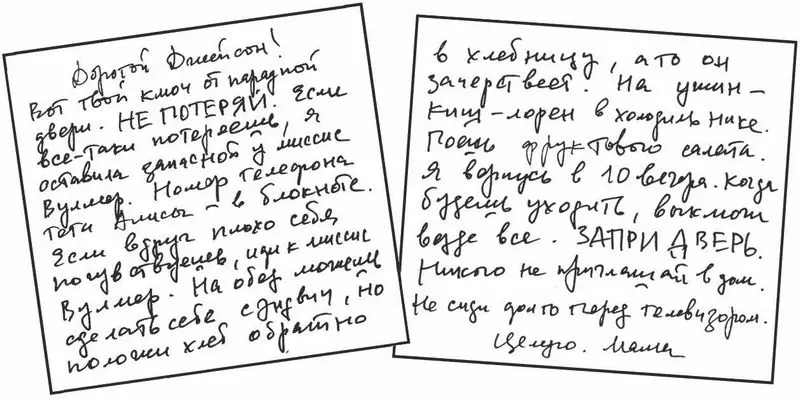 Дорогой Джейсон!
Вот твой ключ от парадной
двери. НЕ ПОТЕРЯЙ. Если
все-таки потеряешь, я
оставила запасной у миссис
Вулмер. Номер телефона
тети Алисы – в блокноте.
Если вдруг плохо себя
почувствуешь, иди к миссис
Вулмер. На обед можешь
сделать себе сэндвич, но
положи хлеб обратно
в хлебницу, а то он
зачерствеет. На ужин –
киш-лорен в холодильнике.
Поешь фруктового салата.
Я вернусь в 10 вечера. Когда
будешь уходить, выключи
везде все. ЗАПРИ ДВЕРЬ.
Никого не приглашай в дом.
Не сиди долго перед телевизором.
Целую. Мама